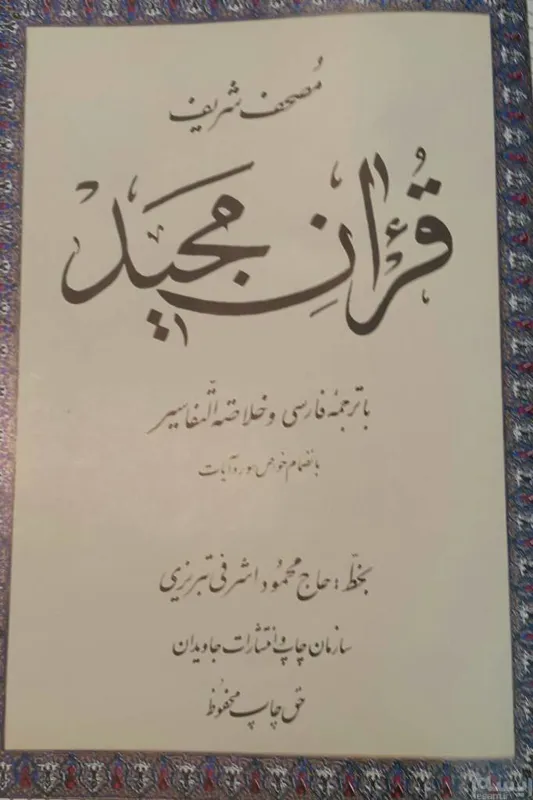 مُصحف شریف
قُرءانِ مجید
با ترجمۀ فارسی و خلاصة التّفاسیر
بانضمام خواص سور و آیات
بخطّ : حاج محمُود اشرفی تبریزی
سازمان چاپ و انتشارات جاویدان
حق چاپ محفُوظ